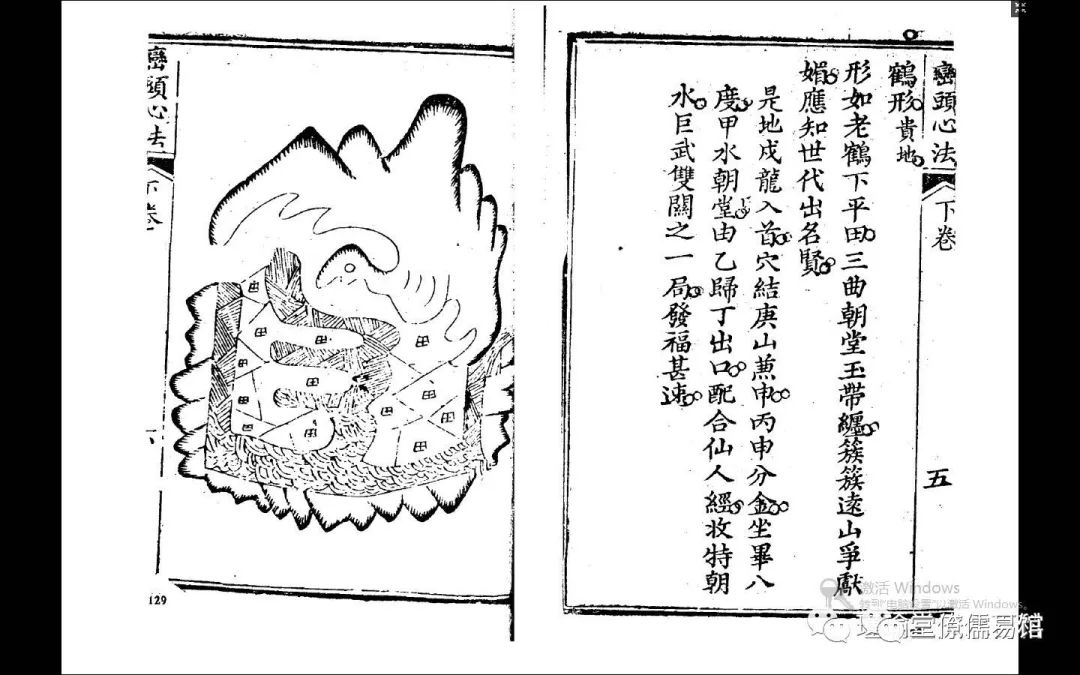 巒頭心法 下卷 五
鶴形貴地
形如老鶴下平田三曲朝堂玉帶纏簇簇遠山爭獻
媚應知世代出名賢
是地戌龍入首穴結庚山兼申丙申分金坐畢八
度甲水朝堂由乙歸丁出口配合仙人經收特朝
水巨武雙關之一局發福甚速
巒頭心法 下卷 六
田
田
田
田
田
田
田
田
田
田
田
田
129
激活 Windows
转到"电脑设置"以激活 Windows。
堂僚儒易館